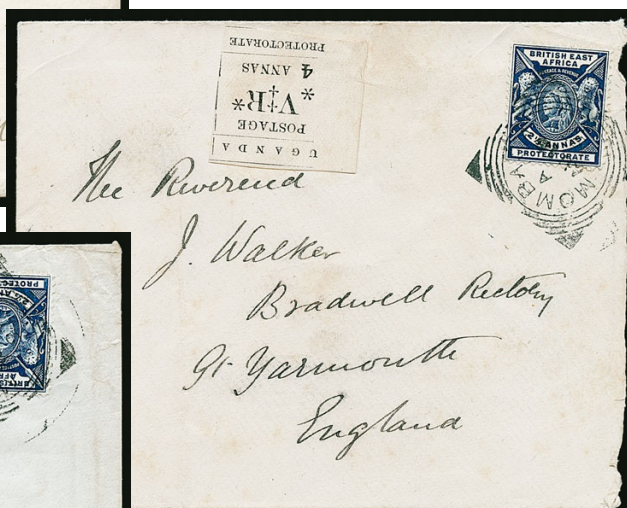 PROTECTORATE
4 ANNAS
*V†R*
POSTAGE
UGANDA
BRITISH EAST
AFRICA
POSTAGE & REVENUE
2½ ANNAS
PROTECTORATE
MOMBA
The Reverend
J. Walker
Bradwell Rectory
Gt Yarmouth
England